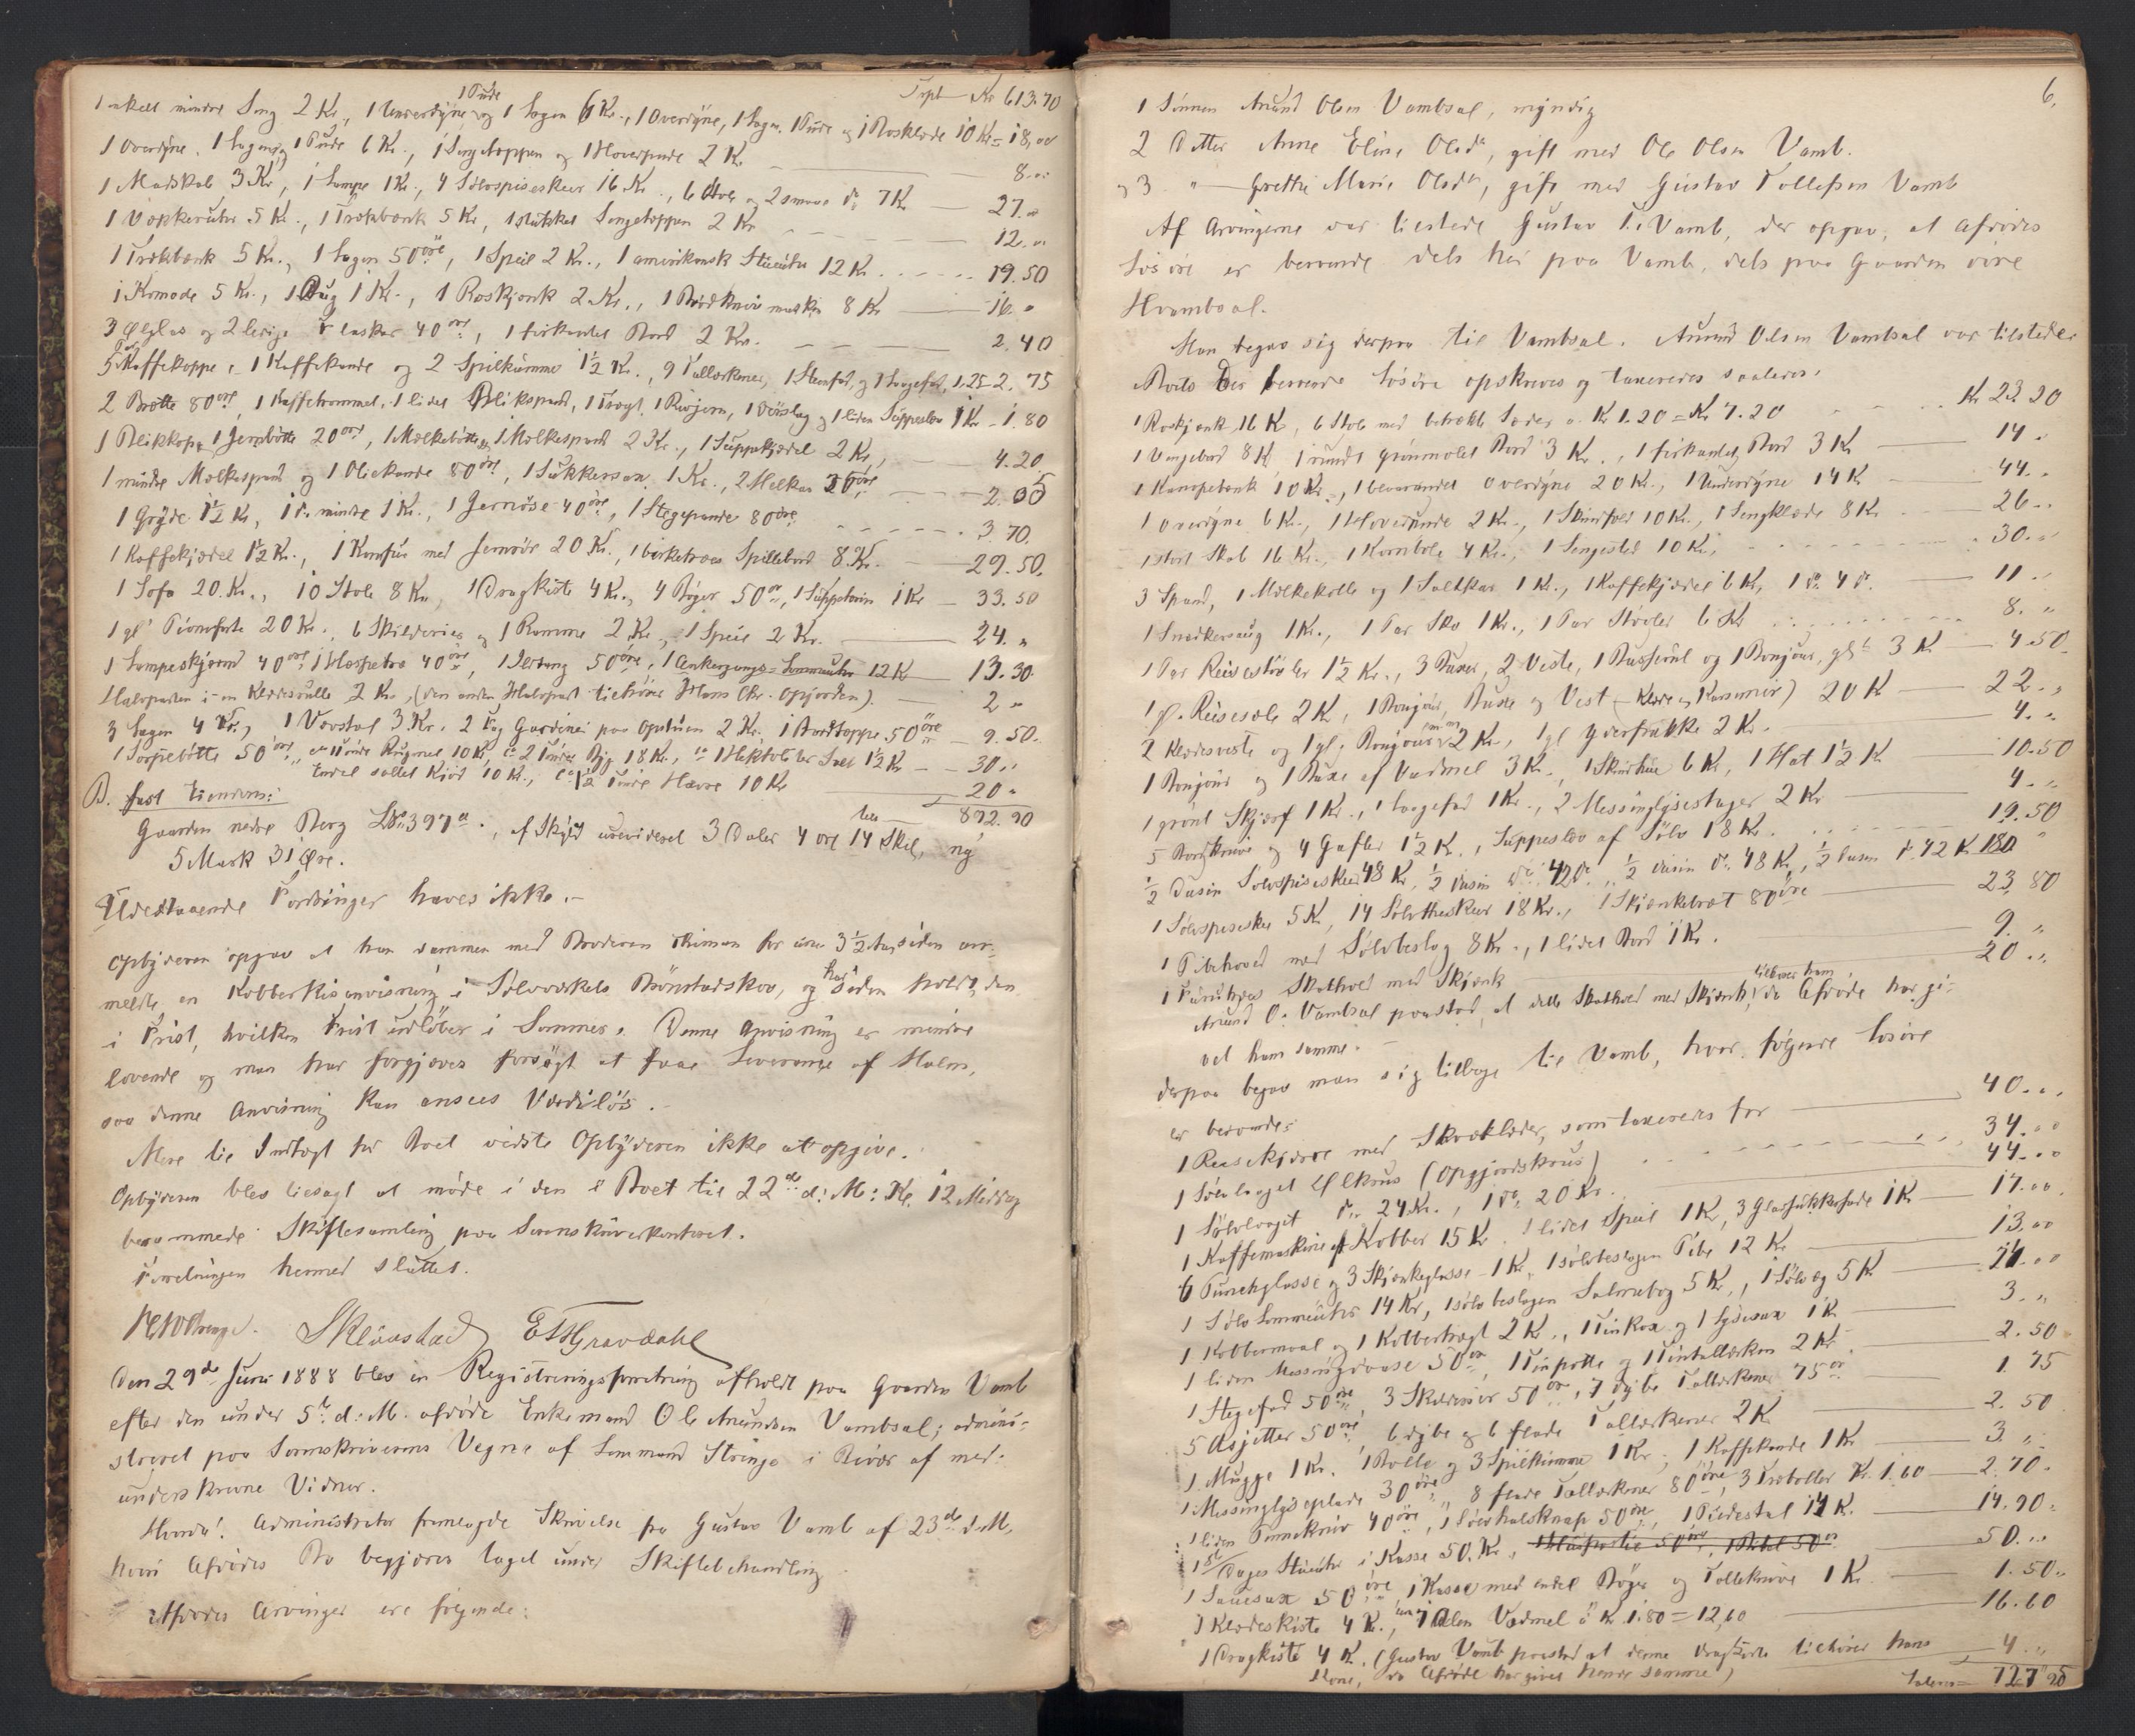 Trspt Kr 613.70
1 enkelt mindre Seng 2 Kr., 1 Underdyne 1 Pude og 1 Lagen 6 Kr., 1 Overdyne, 1 Lagen, 1 Pude og 1 Rosklæde 10 Kr = 18,00
1 Overdyne, 1 Lagen og 1 Pude 6 Kr., 1 Sengeteppen og 1 Hovedpude 2 Kr — 8.00
1 Madskab 3 Kr, 1 Lampe 1 Kr., 4 Sølvspiseskeer 16 Kr., 6 Stole og 2 smaa do 7 Kr — 27.00
1 Vækkeruhr 5 Kr., 1 Trækbænk 5 Kr, 1 slutskel Sengeteppen 2 Kr — 12.00
1 Trækbænk 5 Kr., 1 Lagen 50 øre, 1 Speil 2 Kr., 1 amerikansk Stueuhr 12 Kr. — 19.50
1 Komode 5 Kr., 1 Dug 1 Kr., 1 Roskjænk 2 Kr., 1 Brødkniv maskin 8 Kr — 16.0
3 Ølglas og 2 ledige Flasker 40 øre, 1 firkantet Bord 2 Kr. — 2.40
5 Par Kaffekoppe, 1 Kaffekande og 2 Spilkummer 1½ Kr., 9 Tallerkener, 1 Stenfad, og 1 Saugefad, 1.25 = 2.75
2 Bøtte 80 øre, 1 Kaffetrommel, 1 lidet Blikspand, 1 Tragt, 1 Rivjern, 1 Dørslag og 1 liden Suppeslev 1 Kr — 1.80
1 Blikkop, 1 Jernbøtte 20 øre, 1 Melkebøtte, 1 Melkespand 2 Kr., 1 Suppekjedel 2 Kr, — 4.20
1 mindre Melkespand og 1 Oliekande 80 øre, 1 Sukkersax 1 Kr., 2 Melkar øre — 2.05
1 Gryde 1½ Kr, 1 do mindre 1 Kr., 1 Jernøse 40 øre, 1 Stegepande 80 øre — 3.70.
1 Kaffekjedel 1½ Kr., 1 Komfur med Jernrør 20 Kr., 1 birketræes Spillebord 8 Kr. — 29.50.
1 Sofa 20 Kr., 10 Stole 8 Kr, 1 Dragkiste 4 Kr., 4 Bøger 50 ør, 1 Suppeterrin 1 Kr — 33.50
1 gl. Pianoforte 20 Kr., 6 Skilderier og 1 Ramme 2 Kr, 1 Speil 2 Kr. — 24.„
1 Lampeskjerm 40 øre, 1 Høspetra 40 øre, 1 Ildtang 50 øre, 1 Ankergangs-Lommeuhr 12 Kr — 13.30
Halvparten i en Klædesrulle 2 Kr, (den anden Halvpart tilhører Hans Chr. Opjorden). — 2 „
3 Lagen 4 Kr., 1 Vævstol 3 Kr. 2 Fag Gardiner paa Opstuen 2 Kr., 1 Bordteppe 50 øre — 9.50.
1 Sørpebøtte 50 øre, en Tønde Rugmel 10 Kr, ca 2 Tønder Byg 18 Kr., ca 1 Hektoliter Salt 1½ Kr — 30..
Endel saltet Kjød 10 Kr., ca 1½ Tønde Havre 10 Kr — 20 „
tils — 892.90
B. fast Eiendom:
Gaarden nedre Berg Lbno 397 a. af Skyld urevideret 3 Daler 4 ort 14 Skil, ny
5 Mark 31 Øre.
Udestaaende Fordringer haves ikke. —
Opbyderen opgav at han sammen med Broderen Thimon for circa 3½ Aar siden an-
meldte en Kobberkisanvisning i Sølvverkets skov, og har siden holdt den
i Frist, hvilken Frist udløber i Sommer. Denne Anvisning er mindre
lovende og man har forgjæves forsøgt at faae Leverance af Malm,
saa denne Anvisning kan ansees Værdiløs.
Mere til Indtægt for Boet vidste Opbyderen ikke at opgive.
Opbyderen blev tilsagt at møde i den i Boet til 22de d: M: Kl. 12 Middag
berammede Skiftesamling paa Sorenskriverkontoret.
Forretningen hermed sluttet.
Sklaastad E T Gravdahl
Den 29de Juni 1888 blev en Registreringsforretning afholdt paa Gaarden Vamb
efter den under 5te d: M. afdøde Enkemand Ole Amundsen Vambsal; admini-
streret paa Sorenskriverens Vegne af Lensmand Strenge i Overvær af med-
underskrevne Vidner.
Hvorda! Administrator fremlagde Skrivelse fra Gustav Vamb af 23de d. M,
hvori Afdødes Bo begjæres taget under Skiftebehandling
Afdødes Arvinger ere følgende:
6,
1 Sønnen Amund Olsen Vambsal, myndig
2 Datter Anne Eline Olsdr, gift med Ole Olsen Vamb.
og 3 „ Grethe Marie Olsdr, gift med Gustav Tollefsen Vamb
Af Arvingerne var tilstede Gustav T. Vamb, der opgav, at Afdødes
Løsøre er beroende dels her paa Vamb, dels paa Gaarden øvre
Hvambsal.
Man begav sig derpaa til Vambsal. Amund Olsen Vambsal var tilstede
Boets der beroende Løsøre opskreves og taxeredes saaledes:
1 Roskjænk 16 Kr, 6 Stole med betrækte Sæder a Kr 1.20 = Kr 7.20 — Kr 23.20
1 Vængebord 8 K, 1 rundt grønmalet Bord 3 Kr., 1 firkantet Bord 3 Kr — 14 „
1 Kanapebænk 10 Kr., 1 blaarandet Overdyne 20 Kr., 1 Underdyne 14 K — 44. „
1 Overdyne 6 Kr., 1 Hovedpude 2 Kr., 1 Skindfeld 10 Kr., 1 Sengklæde 8 Kr — 26 ..
1 stort Skab 16 Kr., 1 Kornbøle 4 Kr., 1 Sengested 10 Kr, — 30. „
3 Spand, 1 Melkekolle og 1 Saltkar 1 Kr., 1 Kaffekjedel 6 Kr, 1 do 4 do — 11 „
1 Snedkersaug 1 Kr., 1 Par Sko 1 Kr., 1 Par Støvler 6 Kr — 8. „
1 Par Reisestøvler 1½ Kr., 3 Buxer, 2 Veste, og 1 Bonjour, gl. 3 K — 4.50
1 gl. Reisesæle 2 K, 1 Bonjour, Buxe og Vest (Klæde og Kasimir) 20 K — 22. „
2 Klædesveste og 1 gl. Bonjour 2 Kr, 1 gl Yderfrakke 2 Kr. — 4. „
1 Bonjour og 1 Buxe af Vadmel 3 Kr., 1 Skindhue 6 Kr, 1 Hat 1½ K — 10.50
1 grønt Skjærf 1 Kr., 1 Saugefad 1 Kr., 2 Messinglysestager 2 Kr — 4. „
5 Bordknive og 4 Gafler 1½ K., Suppeslev af Sølv 18 Kr. — 19.50
½ Dusin Sølvspiseskeer 48 Kr, ½ dusin do 42 do, ½ dusin do 48 Kr, ½ dusin do 42 K 180 „
1 Sølvspiseske 5 K, 14 Sølvtheskeer 18 Kr., 1 Skjænkebræt 80 øre — 23,80
1 Pibehoved med Sølvbeslag 8 Kr., 1 lidet Bord 1 Kr. — 9. „
1 Furutræes Skathold med Skjænk — 20 ..
Amund O: Vambsal paastod, at dette Skathold med Skjænk tilhører ham, da Afdøde har gi-
vet ham samme. —
derpaa begav man sig tilbage til Vamb, hvor følgende Løsøre
er beroende:
1 Reisekjærre med Skvætlæder, som taxeredes for — 40...
1 Sølvlaaget Ølkrus (Opgjordskrus) — 34.00
1 Sølvlaaget do 24 Kr., 1 do 20 Kr. — 44.00
1 Kaffemaskine af Kobber 15 Kr. 1 lidet Speil 1 Kr, 3 Glassukkerfade 1 K — 17.00
6 Punchglasse og 3 Skjænkeglasse 1 Kr, 1 sølvbeslagen Pibe 12 Kr — 13.00
1 Sølv Lommeuhr 14 Kr, 1 sølv beslagen Salmebog 5 Kr, 1 Sølvæg 5 K — 24.00
1 Kobbermaal og 1 Kobbertragt 2 Kr., 1 Tinkar og 1 Lysesax 1 K — 3. „
1 liden Messingdaase 50 øre, 1 Tinpotte og 1 Tintallerken 2 Kr — 2.50
1 Stegefad 50 øre, 3 Skilderier 50 øre, 7 dybe Tallerkener 75 ør — 1.75
5 Asjetter 50 øre, 6 dybe og 6 flade Tallerkener 2 K — 2.50
1 Mugge 1 Kr. 1 Bolle og 3 Spilkummer 1 Kr, 1 Kaffekande 1 Kr — 3. „
1 Messinglyseplade 30 øre, 8 flade Tallerkener 80 øre, 3 Træboller Kr. 1.60 — 2.70
1 liden Tinnekniv 40 øre, 1 Sølvhalsknap 50 øre, 1 Piedestal 14 K. — 14.90
1 8te Dages Stueuhr i Kasse 50. Kr., 1 Huspostil 50 øre, 1 Bibel 50 ør — 50...
1 Sauesax 50 øre, 1 Kasse med endel Bøger og Tolleknive 1 K — 1.50„
1 Klædeskiste 4 Kr., 7 Alen Vadmel a Kr 1.80 = 12,60 — 16.60
1 Dragkiste 4 K. (Gustav Vamb paastod at denne Dragkiste tilhører hans — 4..
Kone, da Afdøde har givet hende samme)
Lateris — 727 95